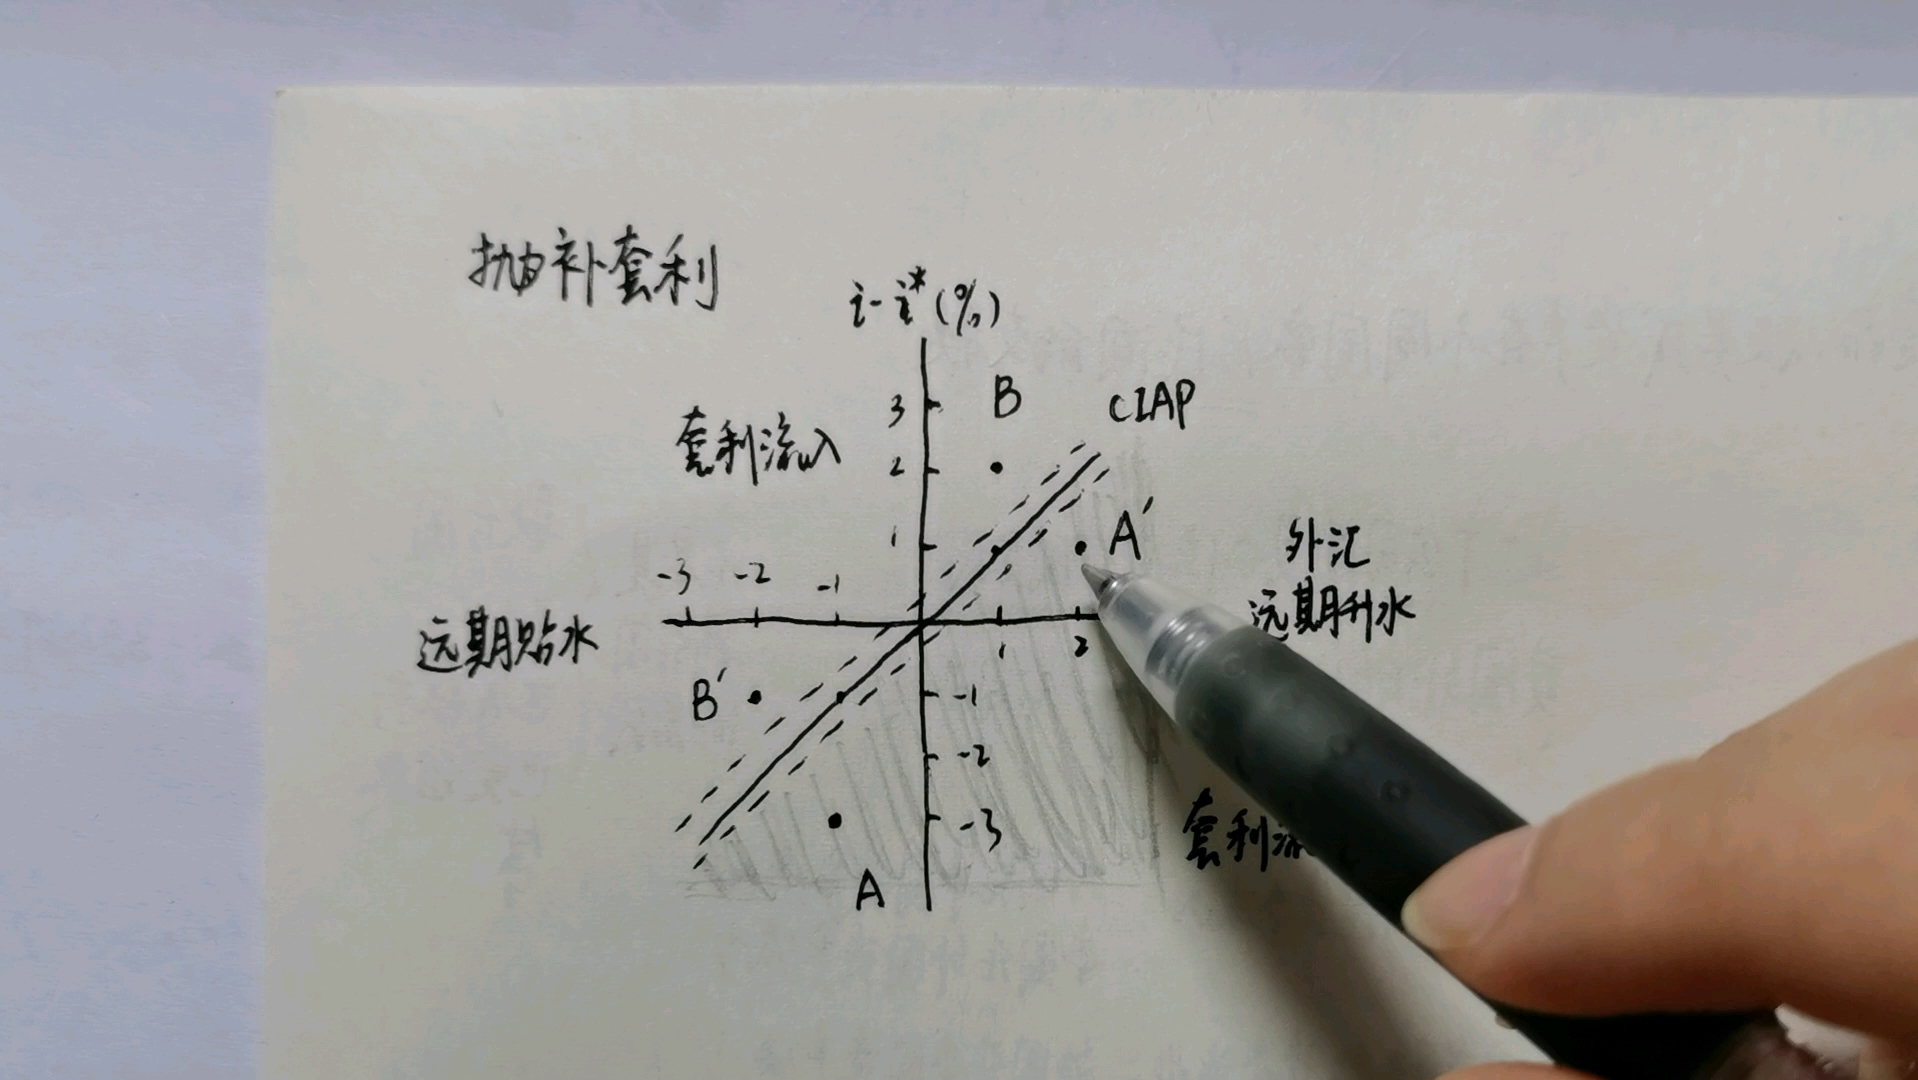 抛补套利
i-i*(%)
3
B
CIAP
套利流入
2
1
A'
外汇
-3 -2 -1
远期升水
远期贴水
1
2
B'
-1
-2
-3
套利流
A